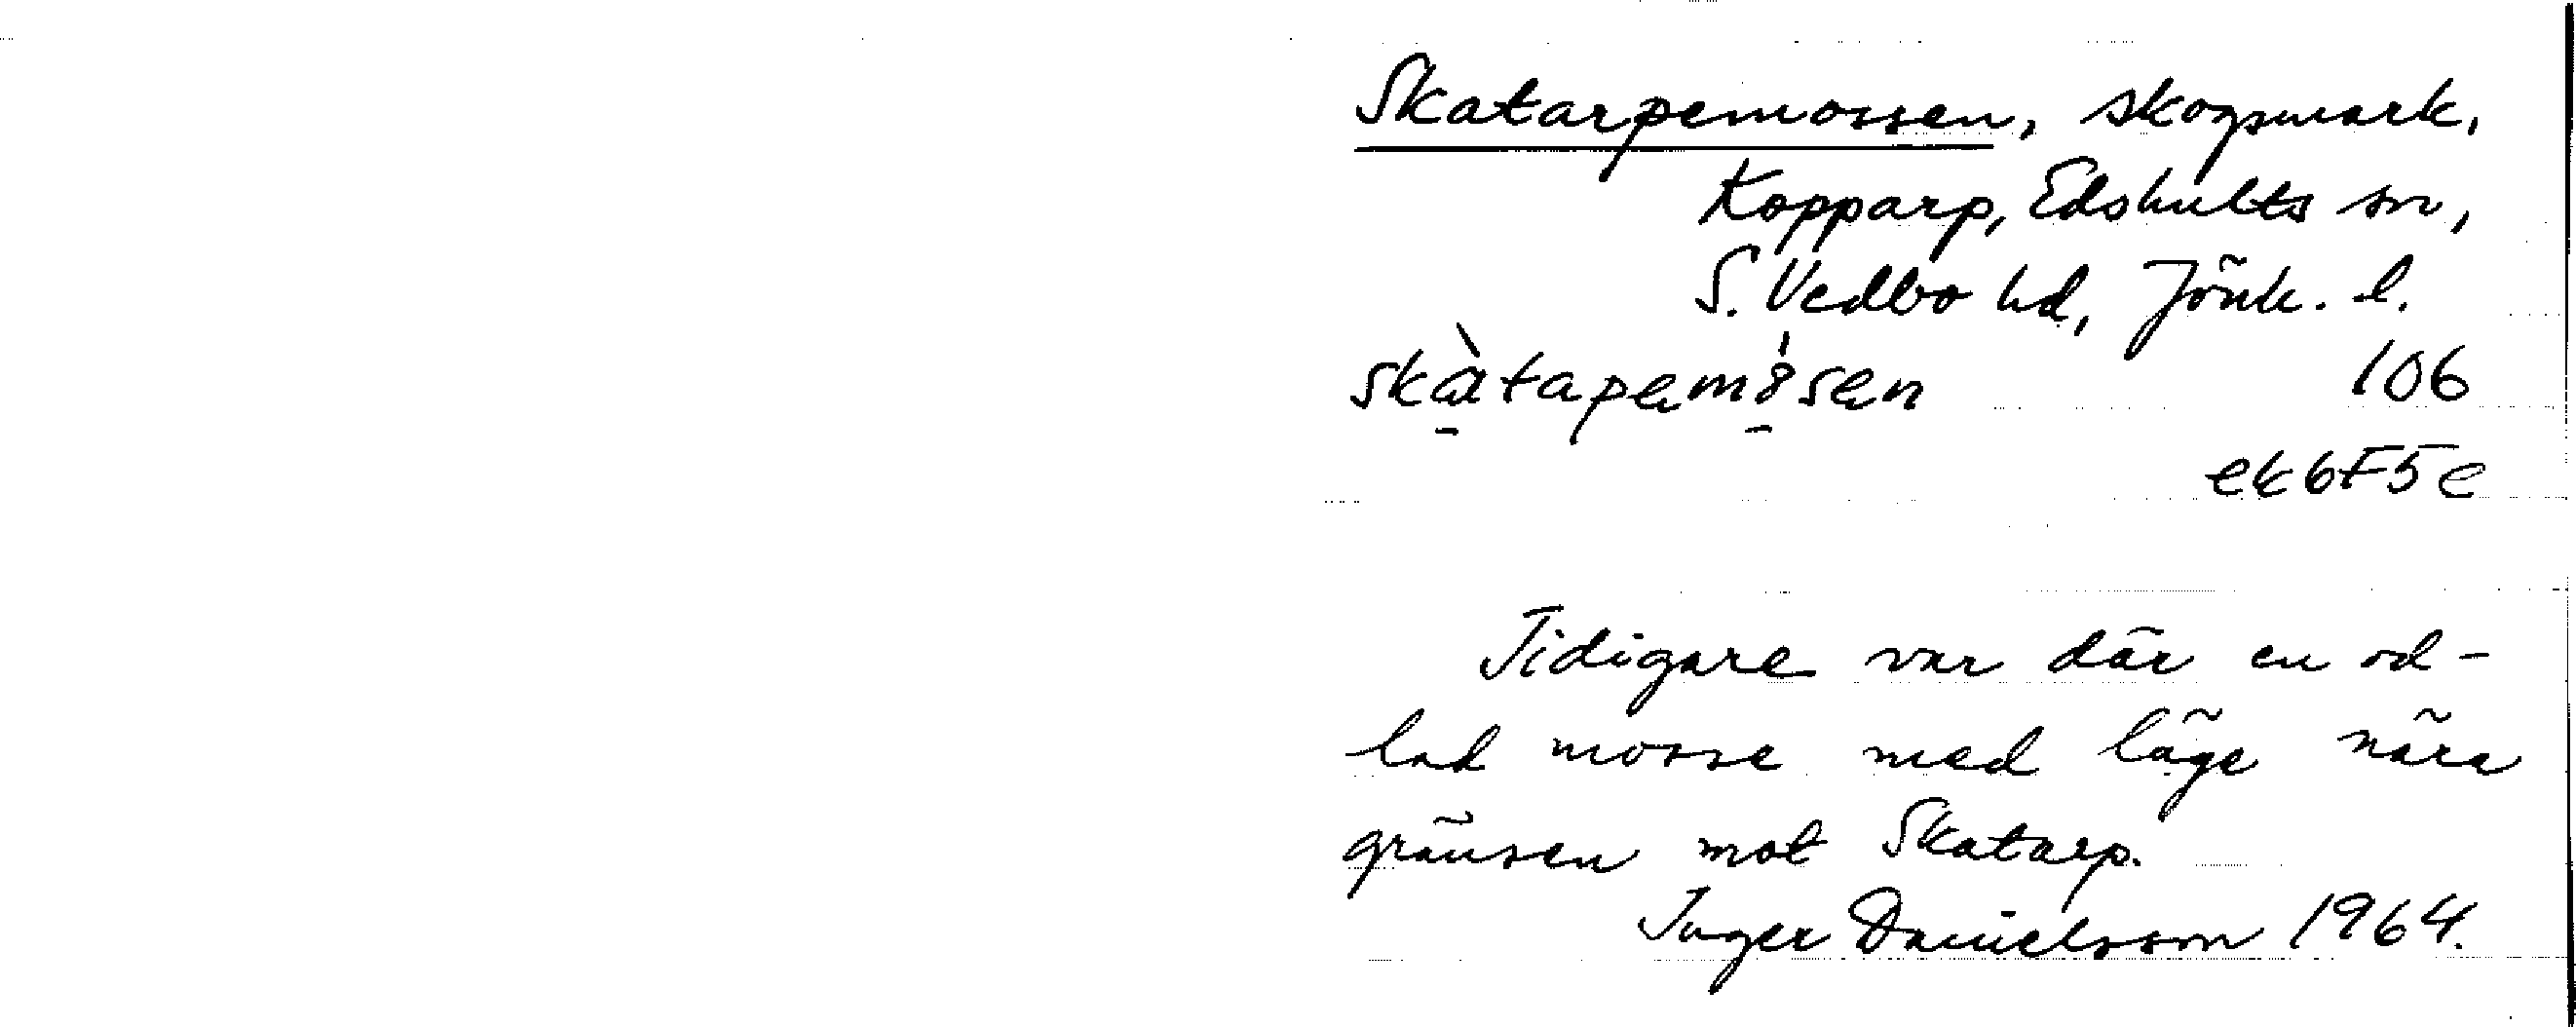 Skatarpemossen, skogsmark,
Kopparp, Edshults sn,
S. Vedbo hd, Jönk. l.
106
ek 6F5e
Tidigare var där en od-
lad mosse med läge nära
gränsen mot Skatarp.
Inger Danielsson 1964.